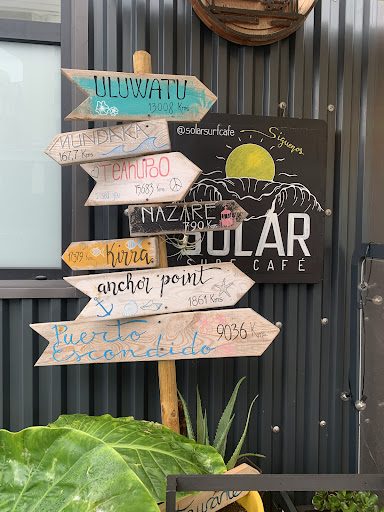 ULUWATU
13008 Kms
MUNDAKA
167,7 Kms
TEAHUPOO
15683 Kms
NAZARÉ
790 Kms
17379
Kirra
anchor point
1861 Kms
Puerto
Escondido
9036 Kms
@solarsurfcafe
Síguenos
SOLAR
SURF CAFÉ